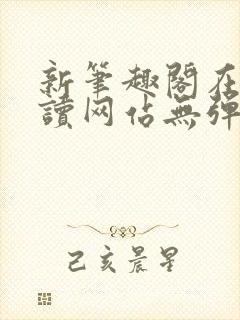 新筆趣閣在
讀网佔無彈
己亥晨星